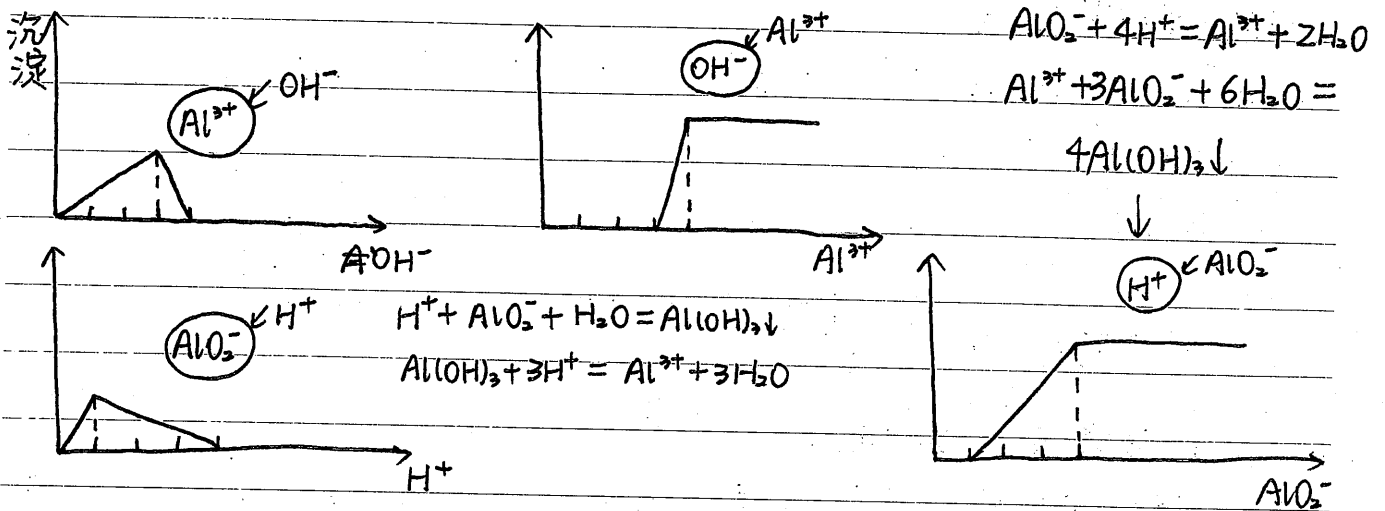 沉淀
Al³⁺ ← OH⁻
OH⁻
OH⁻ ← Al³⁺
Al³⁺
AlO₂⁻ + 4H⁺ = Al³⁺ + 2H₂O
Al³⁺ + 3AlO₂⁻ + 6H₂O =
4Al(OH)₃↓
↓
AlO₂⁻ ← H⁺
H⁺
H⁺ + AlO₂⁻ + H₂O = Al(OH)₃↓
Al(OH)₃ + 3H⁺ = Al³⁺ + 3H₂O
H⁺ ← AlO₂⁻
AlO₂⁻